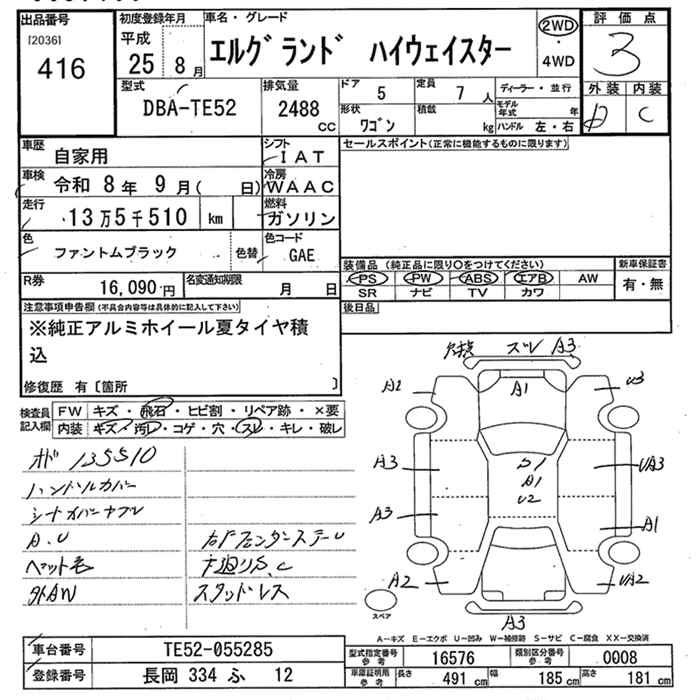 出品番号
[2036]
416
初度登録年月
平成
25 8 月
車名・グレード
エルグランド ハイウェイスター
2WD
・
4WD
評価点
3
外装 内装
D C
型式
DBA-TE52
排気量
2488
cc
ドア
5
定員
7 人
形状
ワゴン
積載
kg
ディーラー・並行
モデル年式 年
ハンドル 左・右
車歴
自家用
シフト
IAT
車検
令和 8年 9月( 日)
冷房
WAAC
走行
13万5千510 km
燃料
ガソリン
色
ファントムブラック
色替
色コード
GAE
R券
16,090円
名変通知期限
月 日
セールスポイント(正常に機能するものに限ります)
装備品 (純正品に限り○をつけてください)
PS PW ABS エアB AW
SR ナビ TV カワ
新車保証書
有・無
後日品
注意事項申告欄(不具合内容等は具体的に記入して下さい)
※純正アルミホイール夏タイヤ積
込
修復歴 有〔箇所 〕
検査員
記入欄
FW キズ・飛石・ヒビ割・リペア跡・×要
内装 キズ・汚レ・コゲ・穴・スレ・キレ・破レ
135510
ハンドルカバー
A.U
ペット毛
外AW
下廻りS,C
スタッドレス
ズレ A3
A2
A1
U3
A3
S1
A1
U2
UA3
A3
A1
A2
UA2
A3
スペア
A-キズ E-エクボ U-凹み W-補修跡 S-サビ C-腐食 XX-交換済
車台番号
TE52-055285
登録番号
長岡 334 ふ 12
型式指定番号
参考
16576
類別区分番号
参考
0008
車庫証明用
参考
長さ
491 cm
幅
185 cm
高さ
181 cm